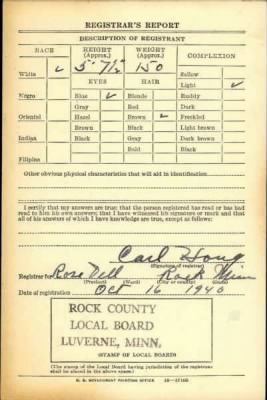 REGISTRAR'S REPORT
DESCRIPTION OF REGISTRANT
RACE HEIGHT (Approx.) WEIGHT (Approx.) COMPLEXION
White ✓ 5' 7½" 150 Sallow
EYES HAIR Light ✓
Negro Blue ✓ Blonde Ruddy
Gray Red Dark
Oriental Hazel Brown ✓ Freckled
Brown Black Light brown
Indian Black Gray Dark brown
Bald Black
Filipino
Other obvious physical characteristics that will aid in identification
I certify that my answers are true; that the person registered has read or has had
read to him his own answers; that I have witnessed his signature or mark and that
all of his answers of which I have knowledge are true, except as follows:
Carl
(Signature of registrar)
Registrar for Rose Dell Rock Minn
(Precinct) (Ward) (City or county) (State)
Date of registration Oct 16 1940
ROCK COUNTY
LOCAL BOARD
LUVERNE, MINN,
(STAMP OF LOCAL BOARD)
(The stamp of the Local Board having jurisdiction of the registrant
shall be placed in the above space.)
U. S. GOVERNMENT PRINTING OFFICE